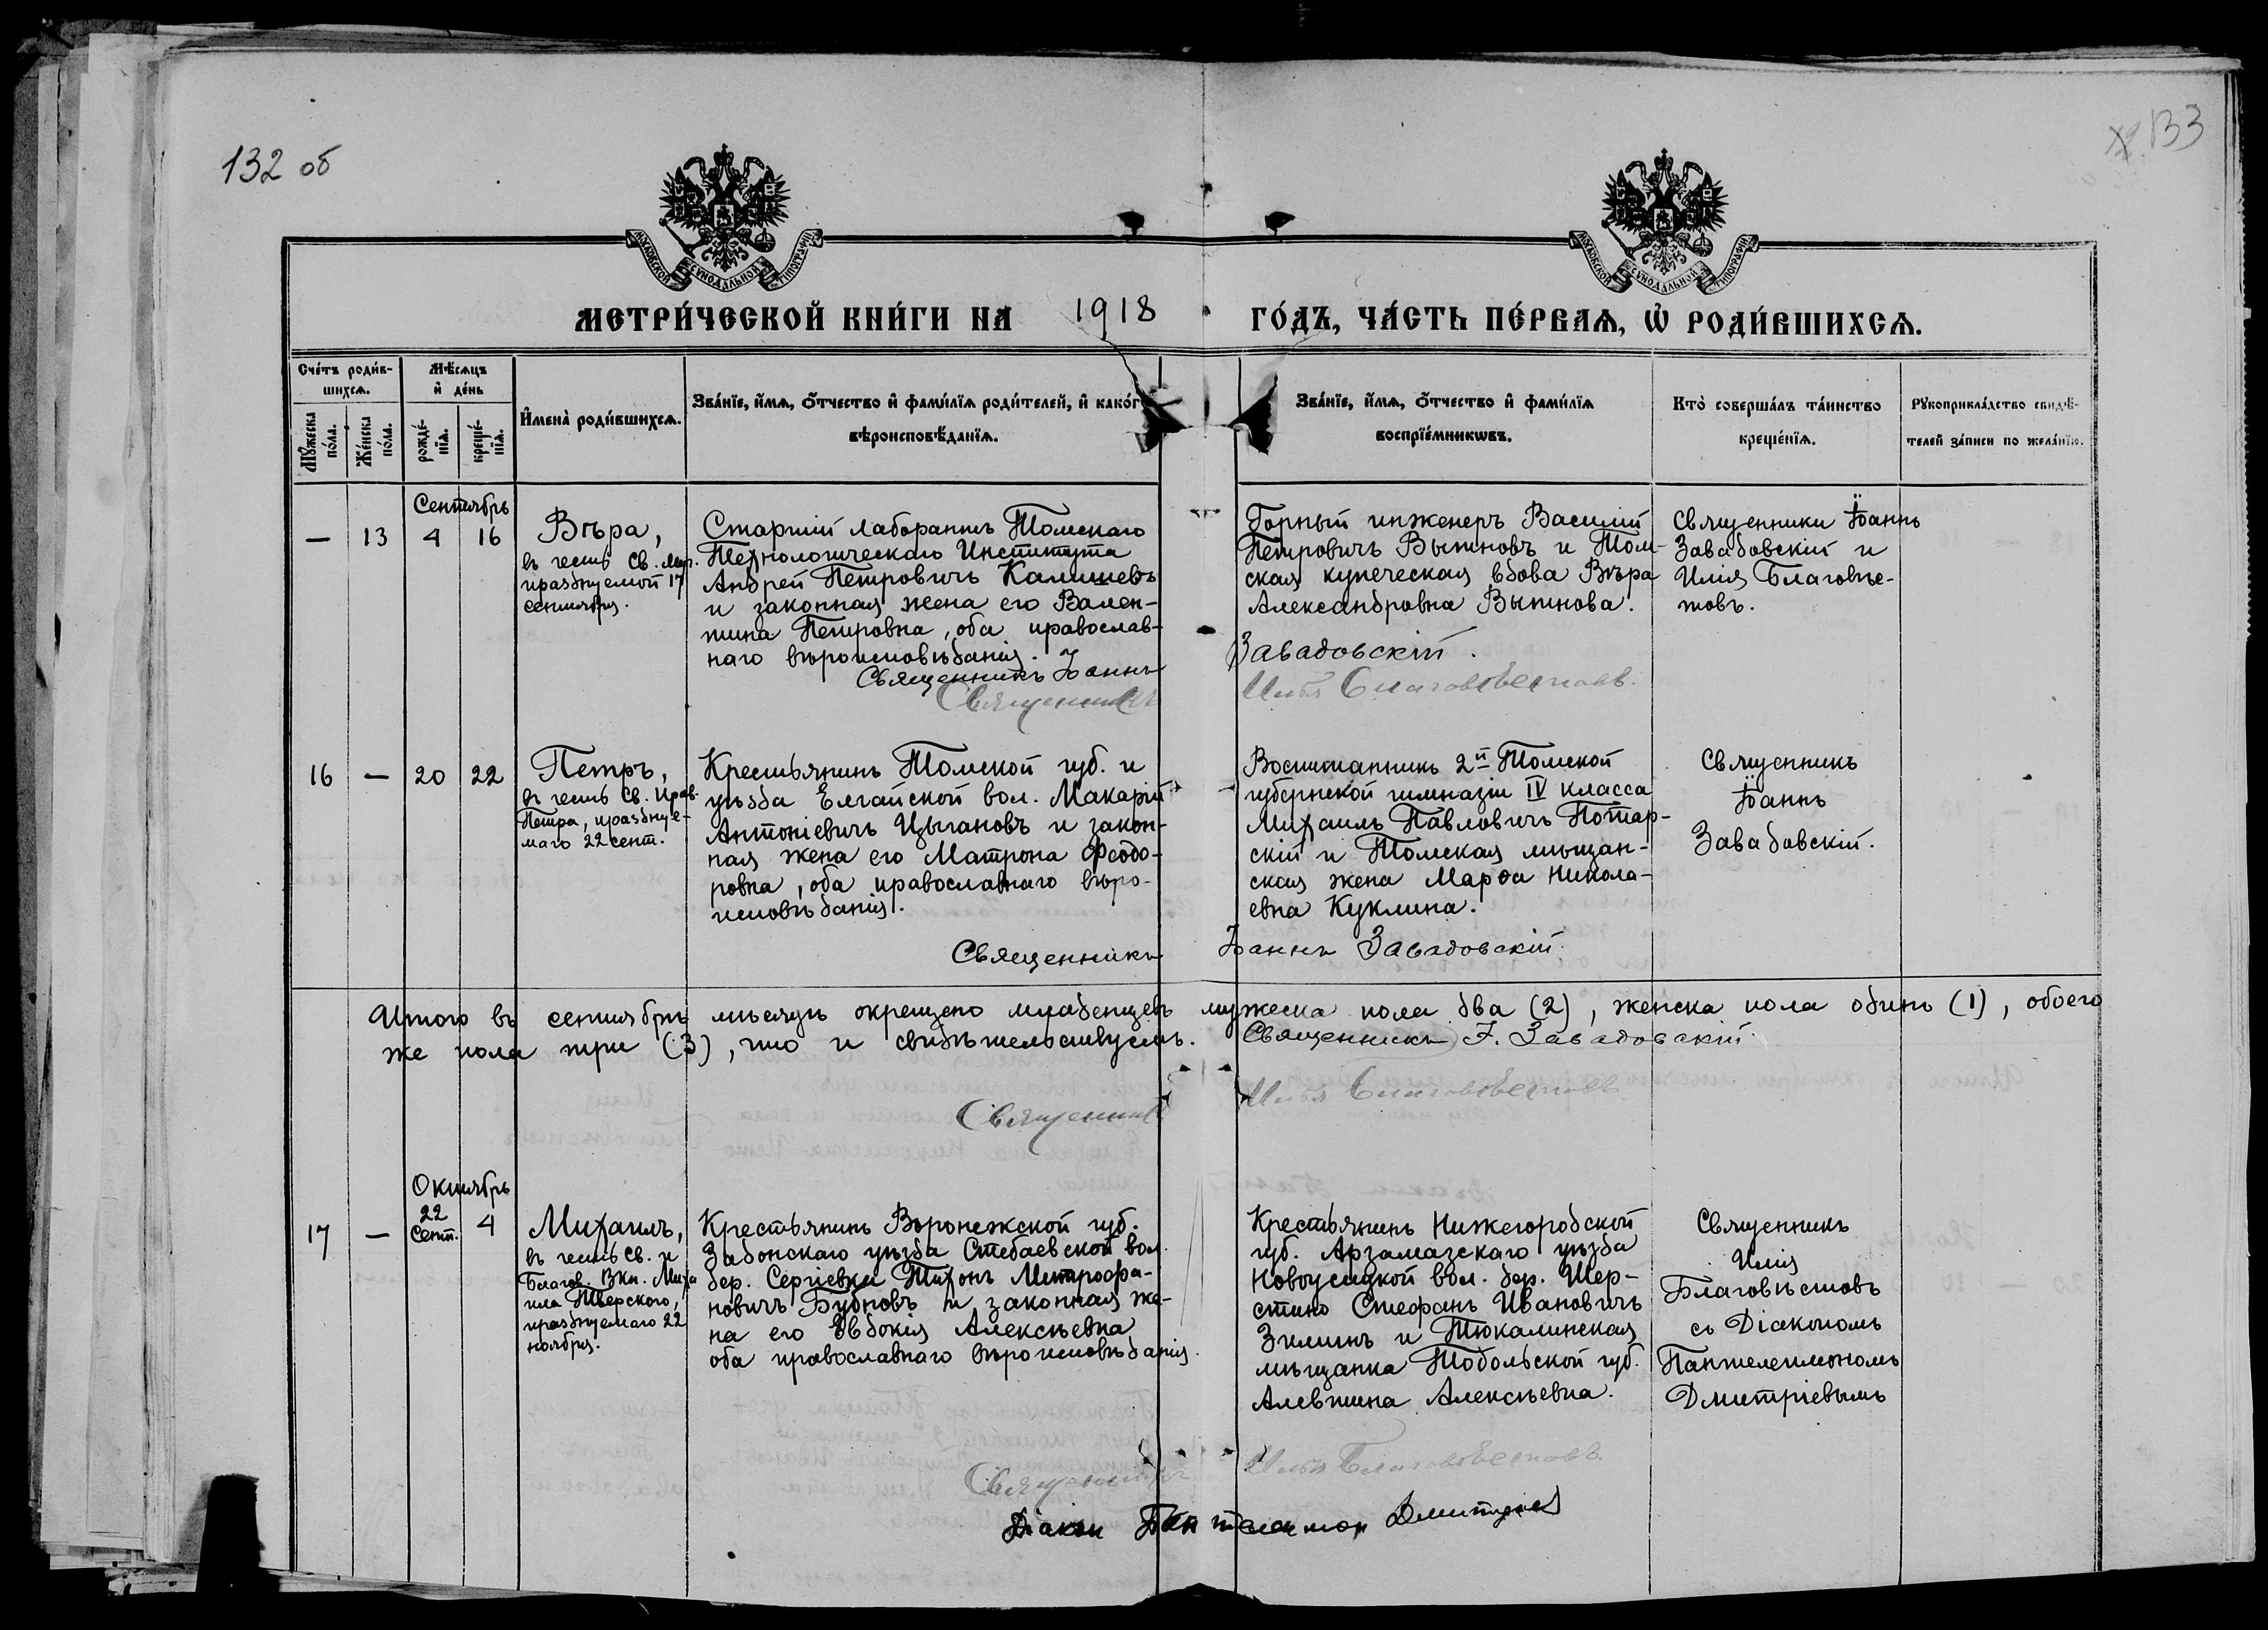 132 об
133
МОСКОВСКОЙ СУНОДАЛЬНОЙ ТИПОГРАФІИ
МОСКОВСКОЙ СУНОДАЛЬНОЙ ТИПОГРАФІИ
МЕТРИ́ЧЕСКОЙ КНИ́ГИ НА 1918 ГО́ДЪ, ЧА́СТЬ ПЕ́РВАѦ, Ѡ҆ РОДИ́ВШИХСѦ.
Сче́тъ роди́в-
шихсѧ.
Мꙋ́жеска
по́ла.
Же́нска
по́ла.
Мѣ́сѧцъ
и҆ де́нь
рожде́-
нїѧ.
креще́-
нїѧ.
И҆мена̀ роди́вшихсѧ.
Зва́нїе, и҆́мѧ, ѻ҆́тчество и҆ фами́лїѧ роди́телей, и҆ како́г
вѣроисповѣ́данїѧ.
Зва́нїе, и҆́мѧ, ѻ҆́тчество и҆ фами́лїѧ
воспрїе́мникѡвъ.
Кто̀ соверша́лъ та́инство
креще́нїѧ.
Рꙋкоприкла́дство свидѣ́-
телей за́писи по жела́нїю.
Сентябрь
— 13 4 16
Вѣра,
въ честь Св. муч.
празднуемой 17
сентября.
Старшій лаборантъ Томскаго
Технологическаго Института
Андрей Петровичъ Калишевъ
и законная жена его Вален-
тина Петровна, оба православ-
наго вѣроисповѣданія.
Горный инженеръ Василій
Петровичъ Вытновъ и Том-
ская купеческая вдова Вѣра
Александровна Вытнова.
Священники Іоаннъ
Завадовскій и
Илія Благовѣс-
товъ.
Священникъ Іоаннъ Завадовскій.
Священникъ Илья Благовѣстовъ.
16 — 20 22
Петръ,
въ честь Св. Прав.
Петра, празднуе-
маго 22 сент.
Крестьянинъ Томской губ. и
уѣзда Елгайской вол. Макарій
Антоніевичъ Цыгановъ и закон-
ная жена его Матрона Ѳеодо-
ровна, оба православнаго вѣро-
исповѣданія.
Воспитанникъ 2й Томской
губернской гимназіи IV класса
Михаилъ Павловичъ Потар-
скій и Томская мѣщан-
ская жена Марѳа Никола-
евна Куклина.
Священникъ
Іоаннъ
Завадовскій.
Священникъ Іоаннъ Завадовскій.
Итого въ сентябрѣ мѣсяцѣ окрещено младенцевъ мужеска пола два (2), женска пола одинъ (1), обоего
же пола три (3), что и свидѣтельствуемъ. Священникъ І. Завадовскій.
Священникъ Илья Благовѣстовъ
Октябрь
17 — 22 Сент. 4
Михаилъ,
въ честь Св. и
Благов. Вкн. Миха
ила Тверского,
празднуемаго 22
ноября.
Крестьянинъ Воронежской губ.
Задонскаго уѣзда Стебаевской вол.
дер. Сергіевки Тихонъ Митрофа-
новичъ Бубновъ и законная же-
на его Евдокія Алексѣевна,
оба православнаго вѣроисповѣданія.
Крестьянинъ Нижегородской
губ. Арзамазскаго уѣзда
Новоусадской вол. дер. Шер-
стино Стефанъ Ивановичъ
Зиминъ и Тюкалинская
мѣщанка Тобольской губ.
Алевтина Алексѣевна.
Священникъ
Илія
Благовѣстовъ
съ Діакономъ
Пантелеимономъ
Дмитріевымъ
Священникъ Илья Благовѣстовъ.
Діакон Пантелеимон Дмитріев